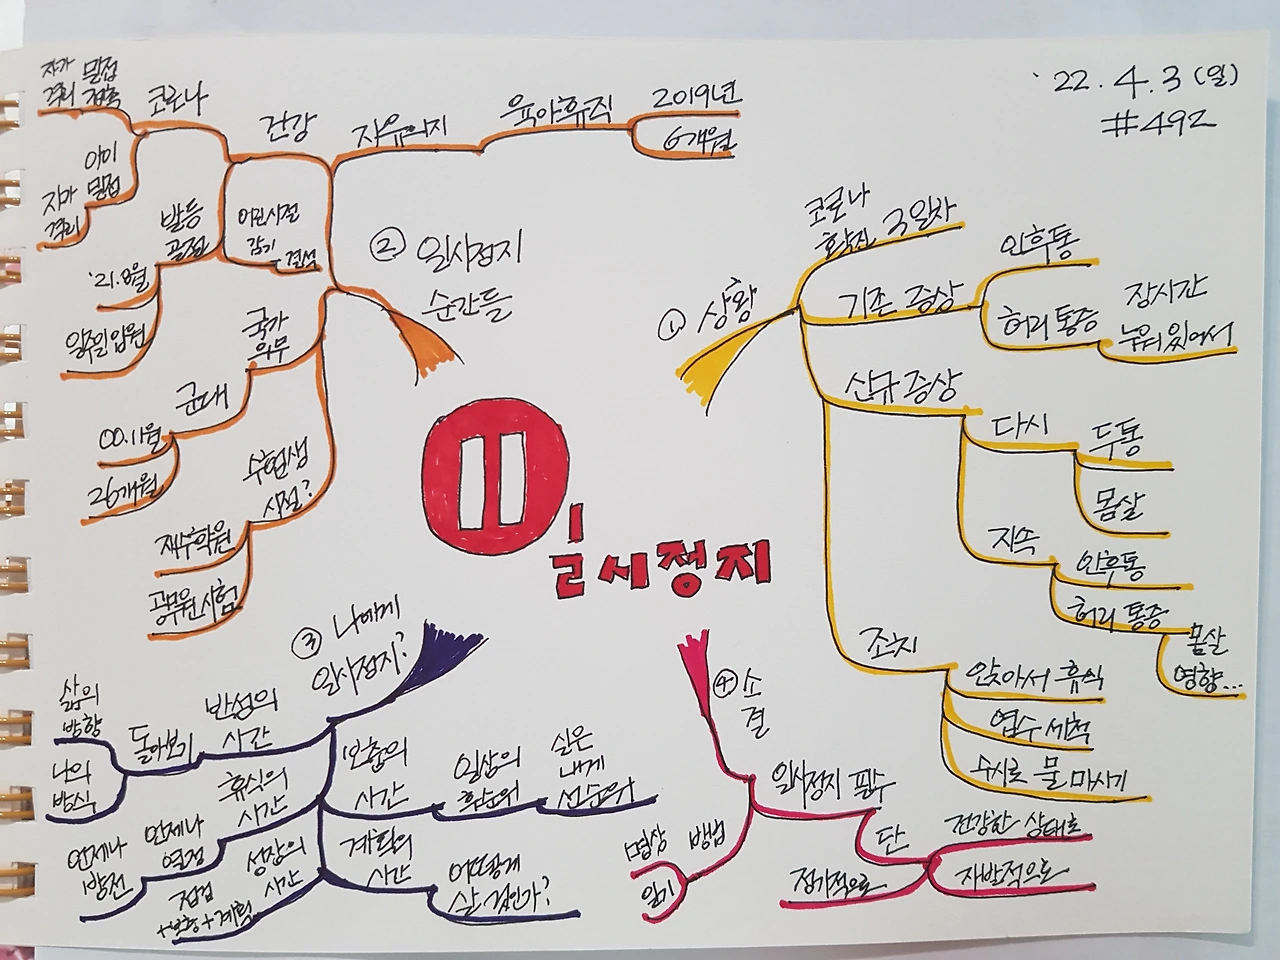 '22. 4. 3 (일)
#492
일시정지
① 상황
코로나
확진 3일차
기존 증상
인후통
허리 통증
장시간
누워있어서
신규 증상
다시
두통
몸살
지속
인후통
허리 통증
몸살
영향...
조치
앉아서 휴식
염수 세척
수시로 물 마시기
② 일시정지
순간들
자유의지
육아휴직
2019년
6개월
건강
코로나
자가 밀접
격리 접촉
아이
밀접
자가
격리
발등
골절
'21.8월
일주일 입원
어린시절
감기
결석
국가
의무
군대
00.11월
26개월
수험생
시절?
재수학원
공무원시험
③ 나에게
일시정지?
반성의
시간
돌아보기
삶의
방향
나의
방식
휴식의
시간
언제나
열정
언제나
방전
성장의
시간
점검
+보충+계획
멈춤의
시간
일상의
후순위
실은
내게
선순위
계획의
시간
어떻게
살 것인가?
④ 소
결
일시정지 필수
단
건강한 상태로
자발적으로
정기적으로
방법
명상
일기